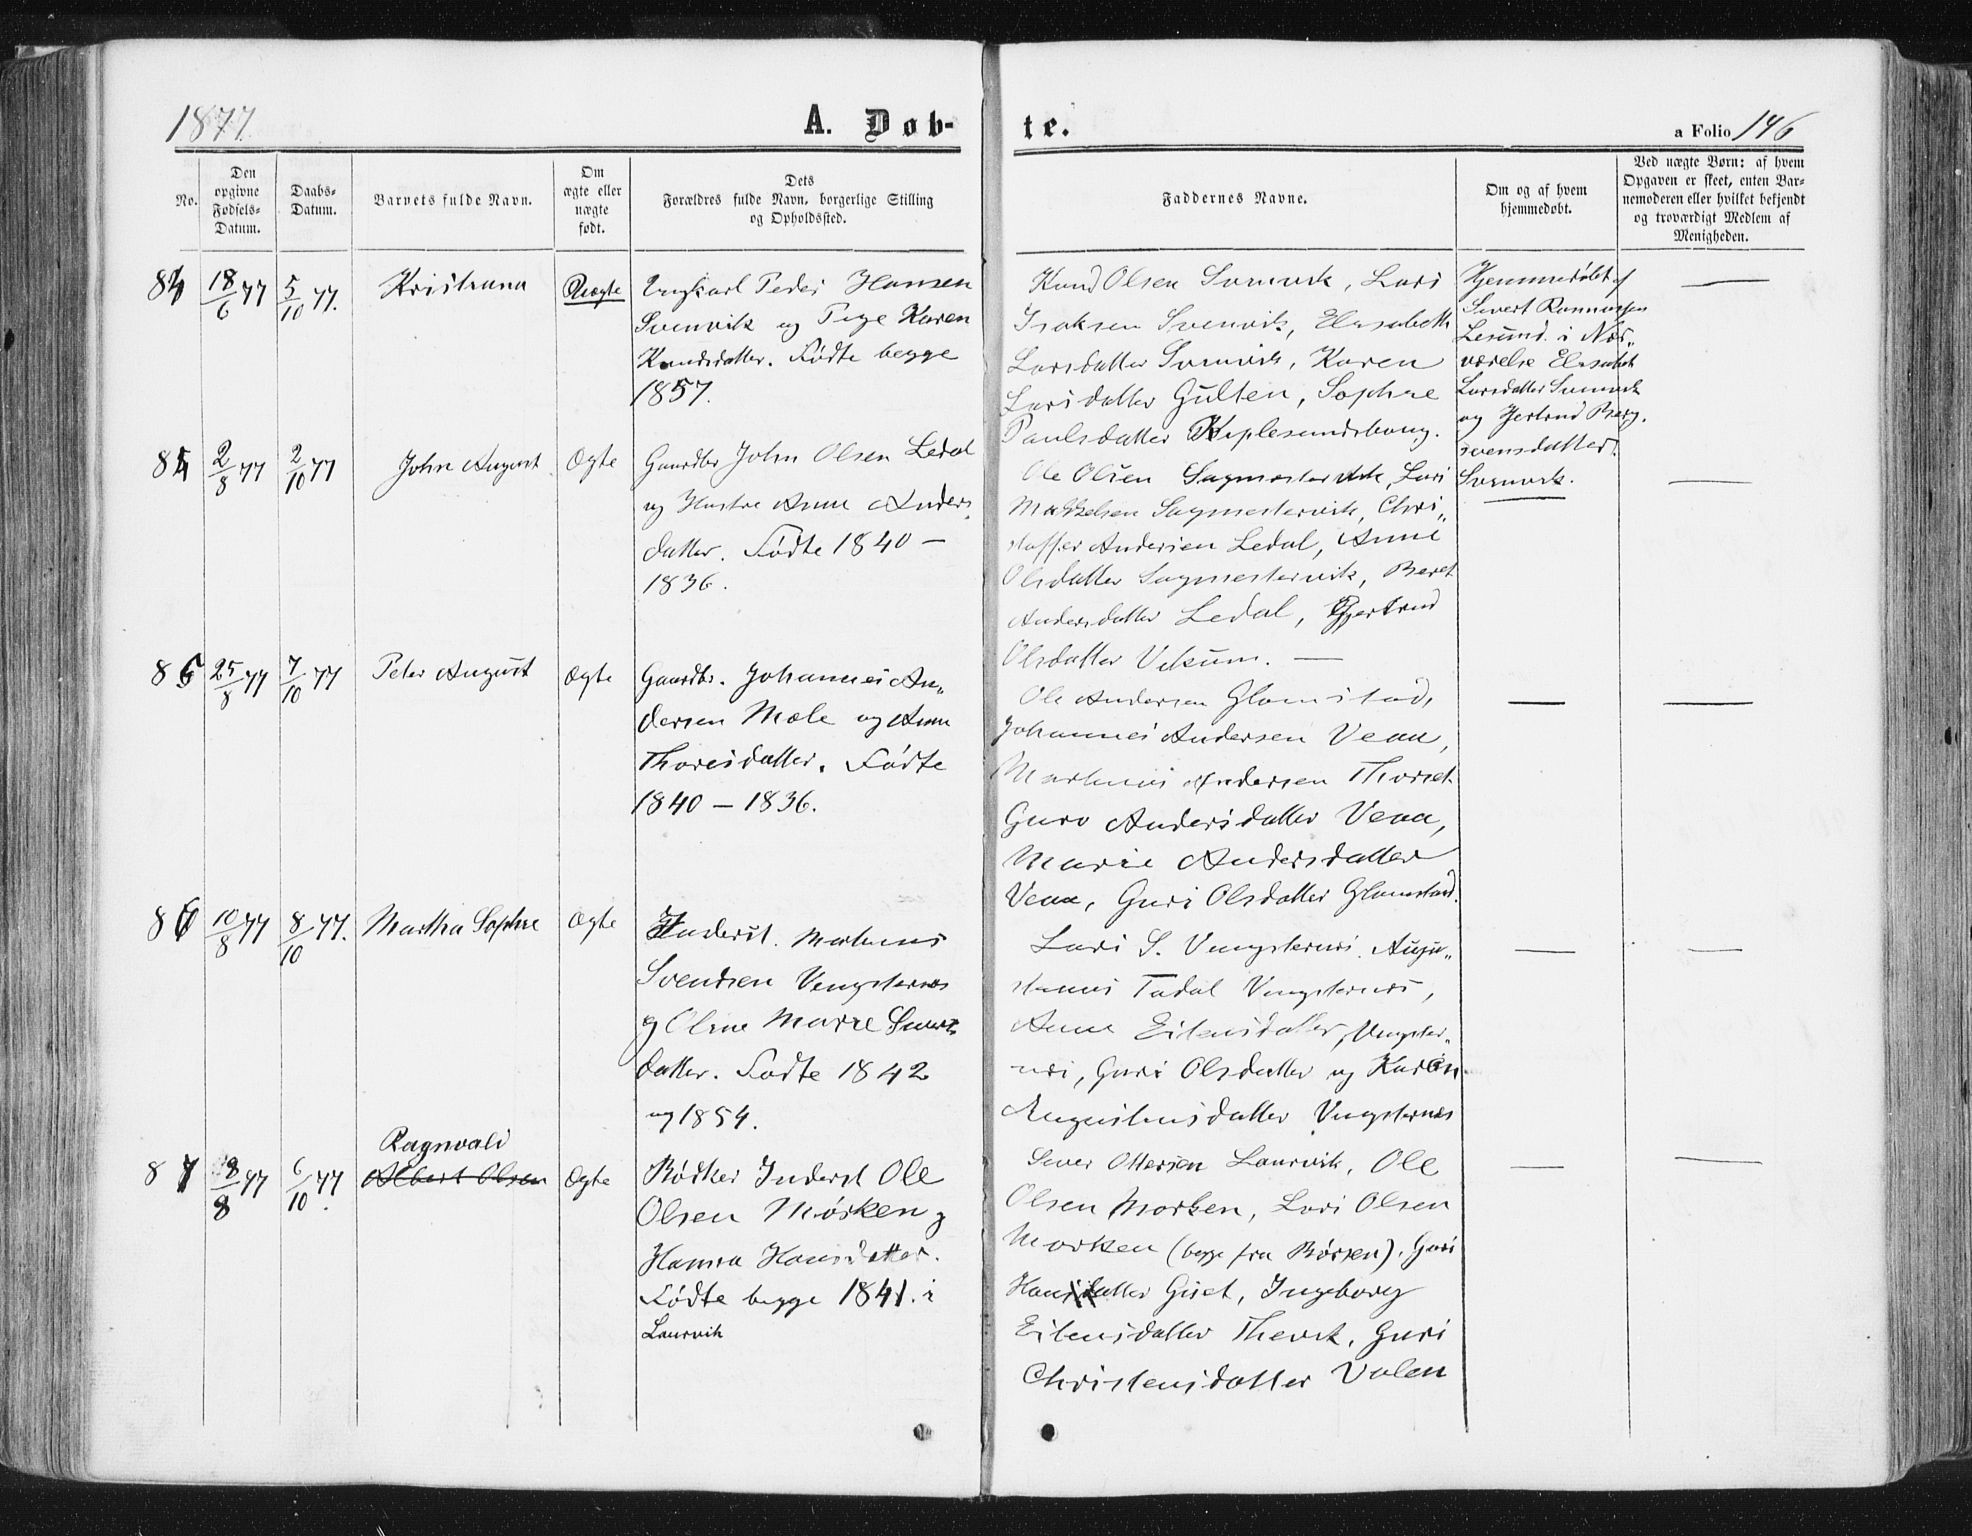 1877.
A. Døb-
te.
a Folio 146
No.
Den
opgivne
Fødsels-
Datum.
Daabs-
Datum.
Barnets fulde Navn.
Om
ægte eller
uægte
født.
Dets
Forældres fulde Navn, borgerlige Stilling
og Opholdssted.
Faddernes Navne.
Om og af hvem
hjemmedøbt.
Ved uægte Børn: af hvem
Opgaven er skeet, enten Bar-
nemoderen eller hvilket bekjendt
og troværdigt Medlem af
Menigheden.
18/6 77
5/10 77.
Kristiana
Uægte
Ungkarl Peder Hansen
Svenvik og Pige Karen
Knudsdatter. Fødte begge
1857.
Knud Olsen Svenvik, Lars
Isaksen Svenvik, Elisabeth
Larsdatter Svenvik, Karen
Larsdatter Gulten, Sophie
Paulsdatter
Hjemmedøbt af
Sivert Rasmussen
Lesund. i Nær„
værelse Elisabet
Larsdatter Svenvik
og Gjertrud Berg.
svensdatter
Svenvik.
2/8 77
2/10 77
John August
Ægte
Gaardbr John Olsen Ledal
og Hustru Anne Anders
datter. Fødte 1840 —
1836.
Ole Olsen Sagmestervik, Lars
Mikkelsen Sagmestervik, Chri„
stoffer Andersen Ledal, Anne
Olsdatter Sagmestervik, Beret
Andersdatter Ledal, Gjertrud
Olsdatter Vikum. —
25/8 77
7/10 77
Peter August
Ægte
Gaardbr. Johannes An„
dersen Mæle og Anne
Thoresdatter. Fødte
1840 — 1836.
Ole Andersen Glamstad,
Johannes Andersen Veaa,
Martinus Andersen Thorset
Guro Andersdatter Veaa,
Marie Andersdatter
Veaa, Guri Olsdatter Glamstad.
86
10/8 77
8/10 77.
Martha Sophie
Ægte
Inderst. Martinus
Svendsen Vingsternæs
og Oline Marie Sivert
datter. Fødte 1842
og 1854.
Lars S. Vingsternes. Augu„
stinus Tødal Vingsternes,
Anne Eilensdatter, Vingster„
næs, Guri Olsdatter og Karen
Augustinusdatter Vingsternæs
87
18/8 77
6/10 77.
Ragnvald
Albert Olsen
Ægte
Bødker Inderst Ole
Olsen Mørken og
Hanna Hansdatter.
Fødte begge 1841. i
Laurvik
Siver Ottersen Laurvik, Ole
Olsen Morken, Lars Olsen
Morken (begge fra Børsen). Guri
Hansdatter Giset, Ingeborg
Eilensdatter Guri
Christensdatter Valen